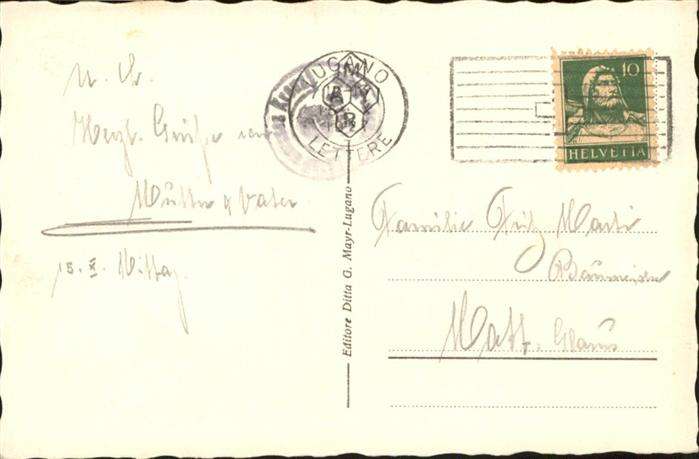 Herzl. Grüsse von
Mutter & Vater
15. X. Mittag.
LUGANO
LETTERE
Editore Ditta G. Mayr-Lugano
10
HELVETIA
Familie Fritz Marti
Matt. Glarus